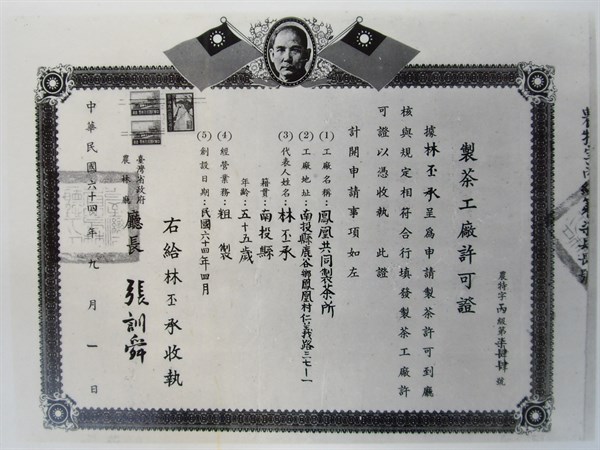 製茶工廠許可證
農特字丙級第柒肆肆號
據林丕承呈為申請製茶許可到廳
核與規定相符合行填發製茶工廠許
可證以憑收執 此證
計開申請事項如左
(1) 工廠名稱：鳳凰共同製茶所
(2) 工廠地址：南投縣鹿谷鄉鳳凰村仁義路三七-一
(3) 代表人姓名：林丕承
籍貫：南投縣
年齡：五十五歲
(4) 經營業務：粗製
(5) 創設日期：民國六十四年四月
右給林丕承收執
臺灣省政府農林廳
廳長 張訓舜
中華民國六十四年九月一日